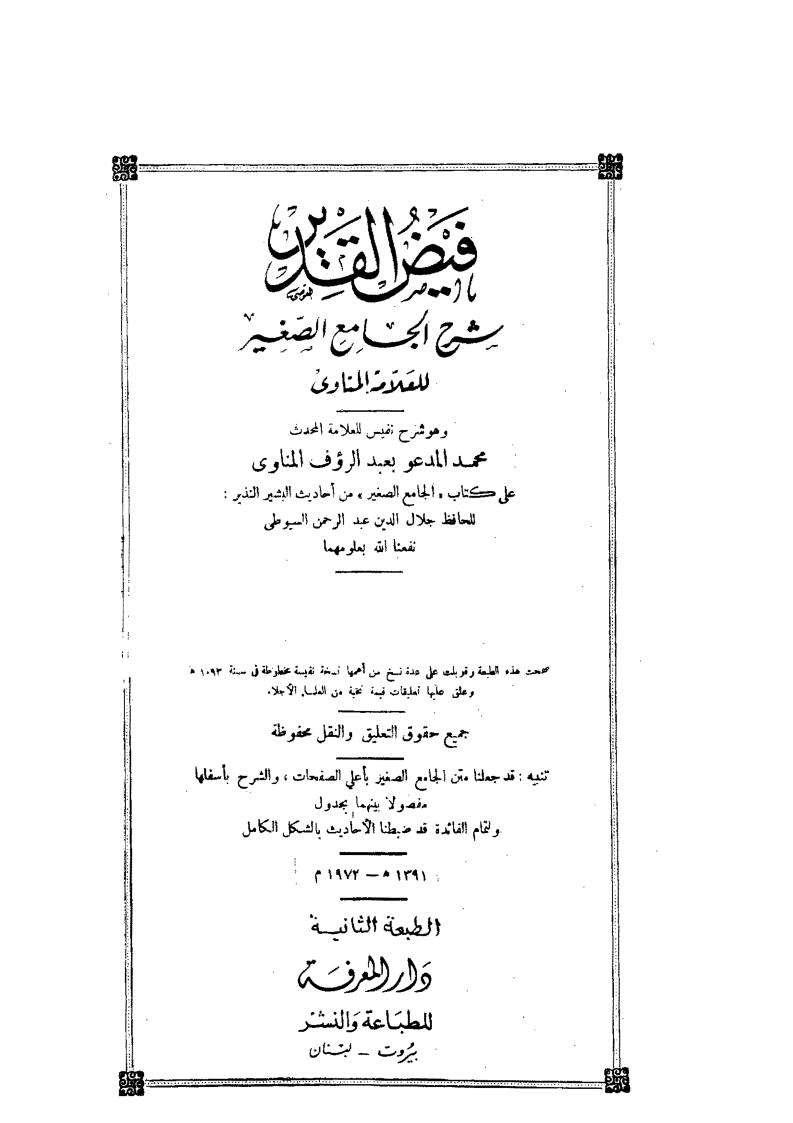 فيض القدير
شرح الجامع الصغير
للعلامة المناوى
وهو شرح نفيس للعلامة المحدث
محمد المدعو بعبد الرؤف المناوى
على كتاب «الجامع الصغير» من أحاديث البشير النذير :
للحافظ جلال الدين عبد الرحمن السيوطى
نفعنا الله بعلومهما
صححت هذه الطبعة وقوبلت على عدة نسخ من أهمها نسخة نفيسة مخطوطة فى سنة ١٠٩٣ ه
وعلق عليها تعليقات قيمة نخبة من العلماء الأجلاء
جميع حقوق التعليق والنقل محفوظة
تنبيه : قد جعلنا متن الجامع الصغير بأعلى الصفحات ، والشرح بأسفلها
مفصولا بينهما بجدول
ولتمام الفائدة قد ضبطنا الأحاديث بالشكل الكامل
١٣٩١ ه – ١٩٧٢ م
الطبعة الثانية
دار المعرفة
للطباعة والنشر
بيروت – لبنان